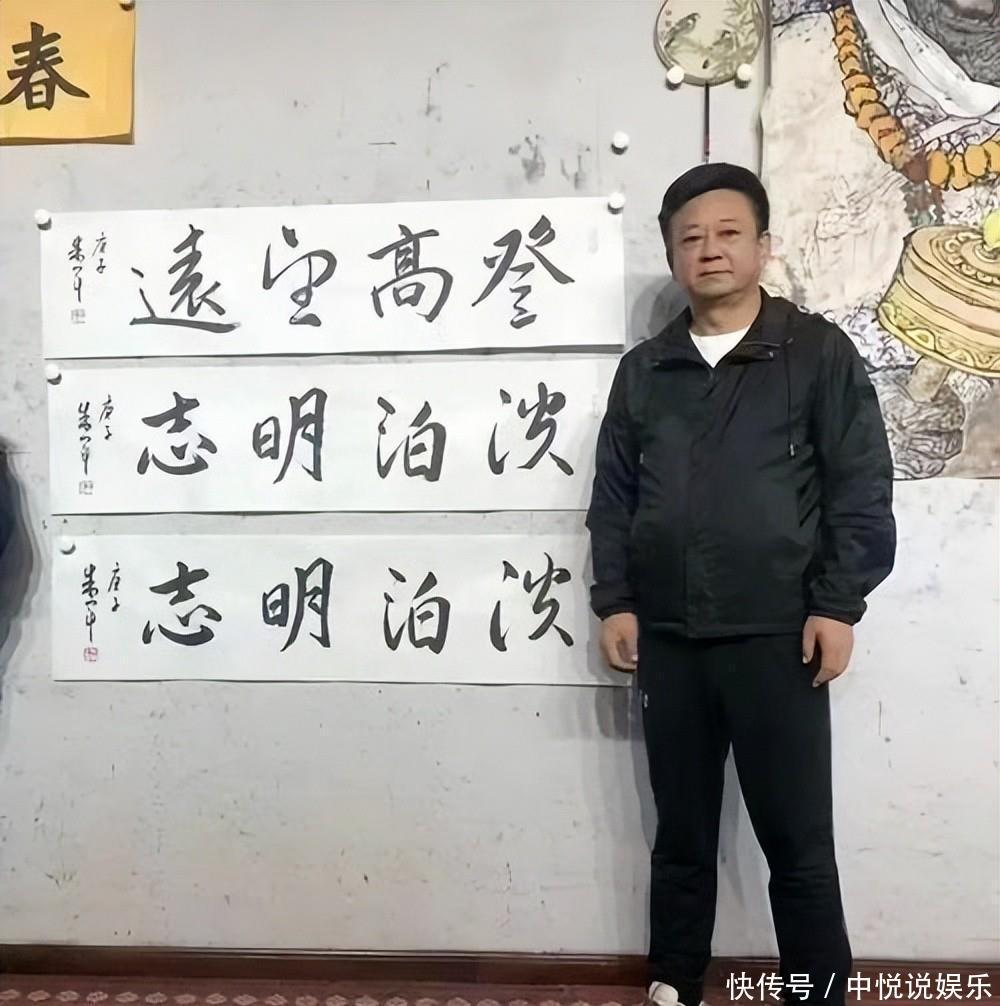 春
登高望遠
庚子
朱军
淡泊明志
庚子
朱军
淡泊明志
庚子
朱军
快传号 / 中悦说娱乐